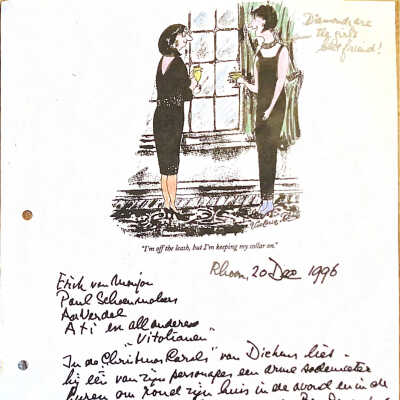 Diamonds are
the girls
best friend!
"I'm off the leash, but I'm keeping my collar on."
Rhoon, 20 Dec 1996
Erik van
Paul Schoenmakers
Aa Verdel
Ati en all anderen
"Vitolianen"
In de Christmas Carols van Dickens liet
hij één van zijn personages een arme
rond zijn huis in de avond en in de